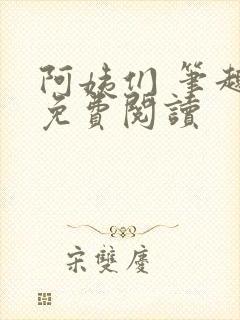 阿姨们 筆趣
免費閱讀
宋雙慶